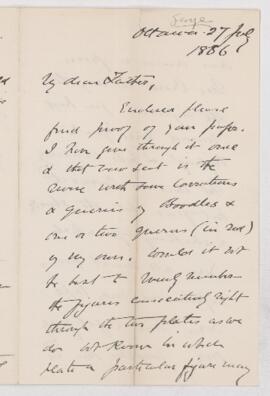 George
Ottawa 27 July
1886
My dear Father,
Enclosed please
find proof of your paper.
I have gone through it once
& that now sent is the
revise with some corrections
& queries of &
one or two queries (in red)
of my own. Would it not
be best to number
the figures consecutively right
through the two plates as we
do at in which
plate a particular figure may